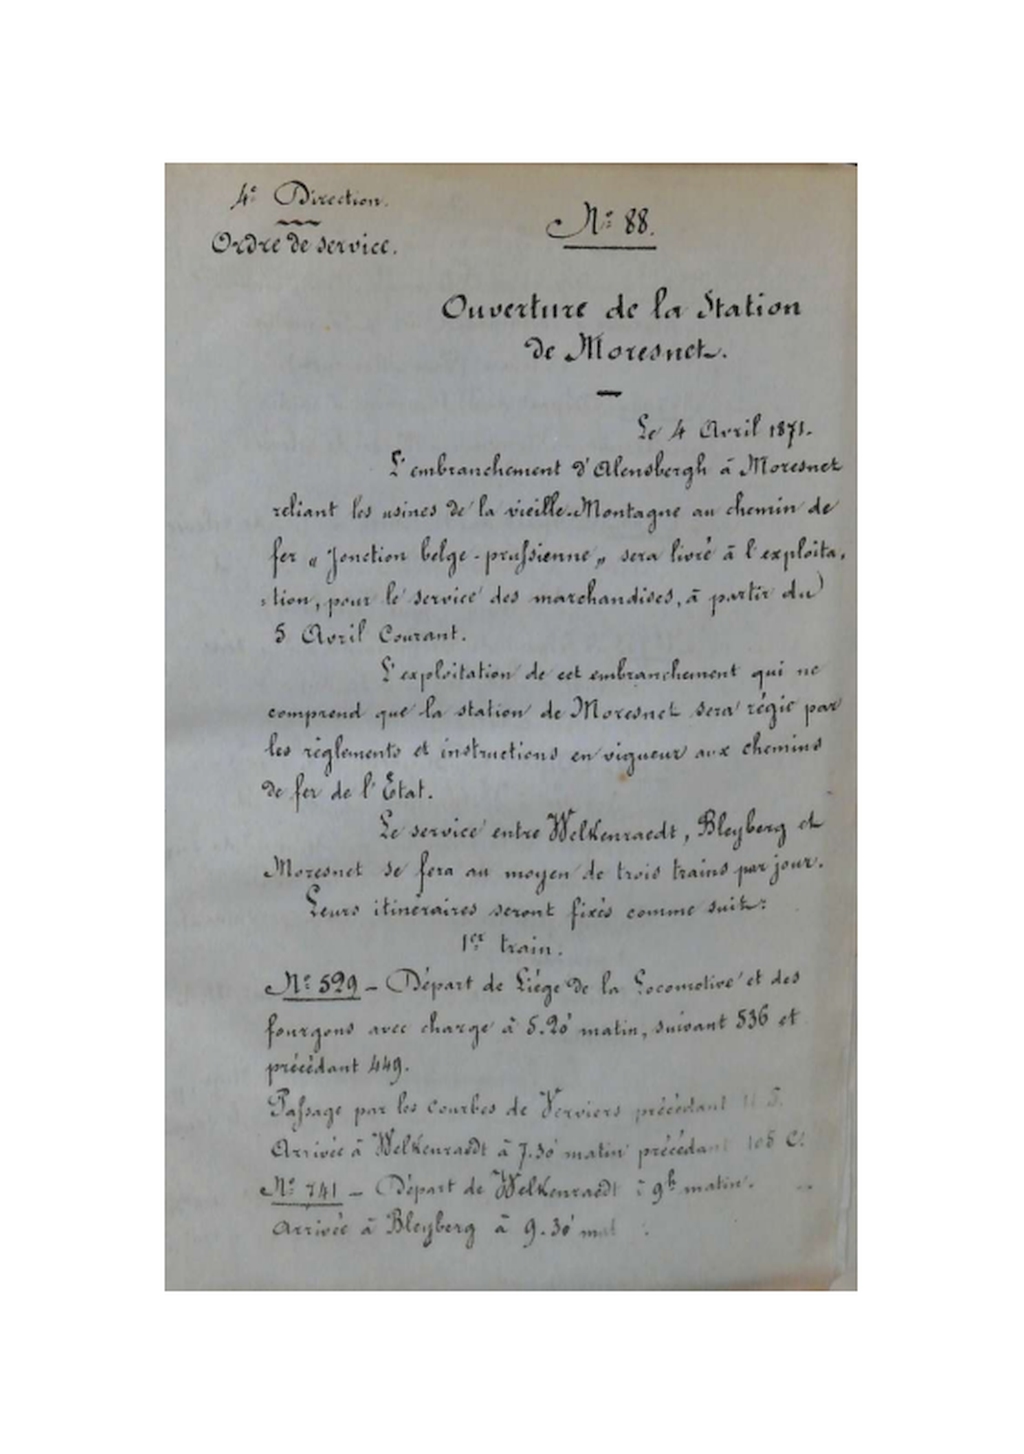 4e Direction.
Ordre de service.
No 88.
Ouverture de la Station
de Moresnet.
Le 4 Avril 1871.
L'embranchement d'Alensbergh à Moresnet
reliant les usines de la vieille-Montagne au chemin de
fer "Jonction belge-prussienne" sera livré à l'exploita-
-tion, pour le service des marchandises, à partir du
5 Avril Courant.
L'exploitation de cet embranchement qui ne
comprend que la station de Moresnet sera régie par
les règlements et instructions en vigueur aux chemins
de fer de l'Etat.
Le service entre Welkenraedt, Bleyberg et
Moresnet se fera au moyen de trois trains par jour.
Leurs itinéraires seront fixés comme suit:
1er train.
No 529 - Départ de Liége de la Locomotive et des
fourgons avec charge à 5.20' matin, suivant 536 et
précédant 449.
Passage par les courbes de Verviers précédant
Arrivée à Welkenraedt à 7.30' matin précédant 108 C.
No 741 - Départ de Welkenraedt à 9h matin.
Arrivée à Bleyberg à 9.30'